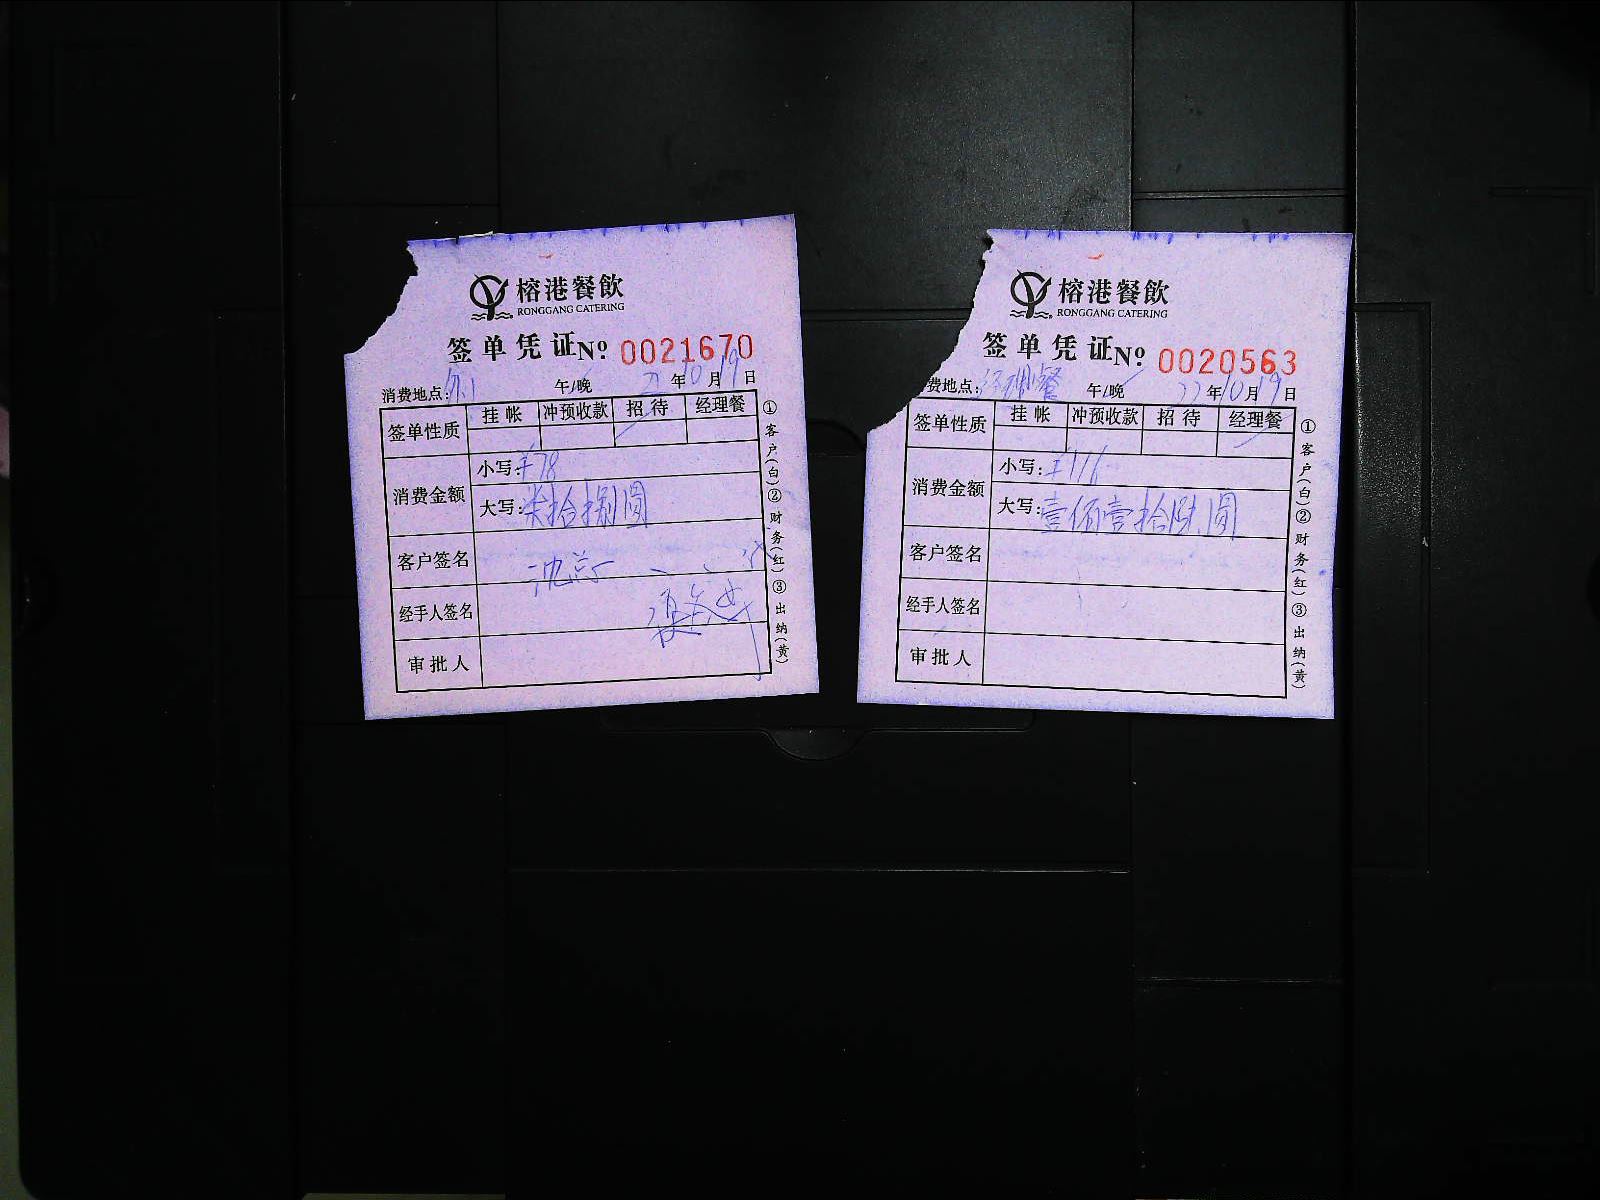 榕港餐飲
RONGGANG CATERING
签单凭证 Nº 0021670
消费地点: 午/晚 年10月19日
签单性质 挂帐 冲预收款 招待 经理餐
消费金额 小写:¥78
大写:柒拾捌圆
客户签名
经手人签名
审批人
①客户(白)②财务(红)③出纳(黄)
榕港餐飲
RONGGANG CATERING
签单凭证 Nº 0020563
费地点:经理餐 午/晚 22年10月19日
签单性质 挂帐 冲预收款 招待 经理餐
消费金额 小写:¥116
大写:壹佰壹拾陆圆
客户签名
经手人签名
审批人
①客户(白)②财务(红)③出纳(黄)